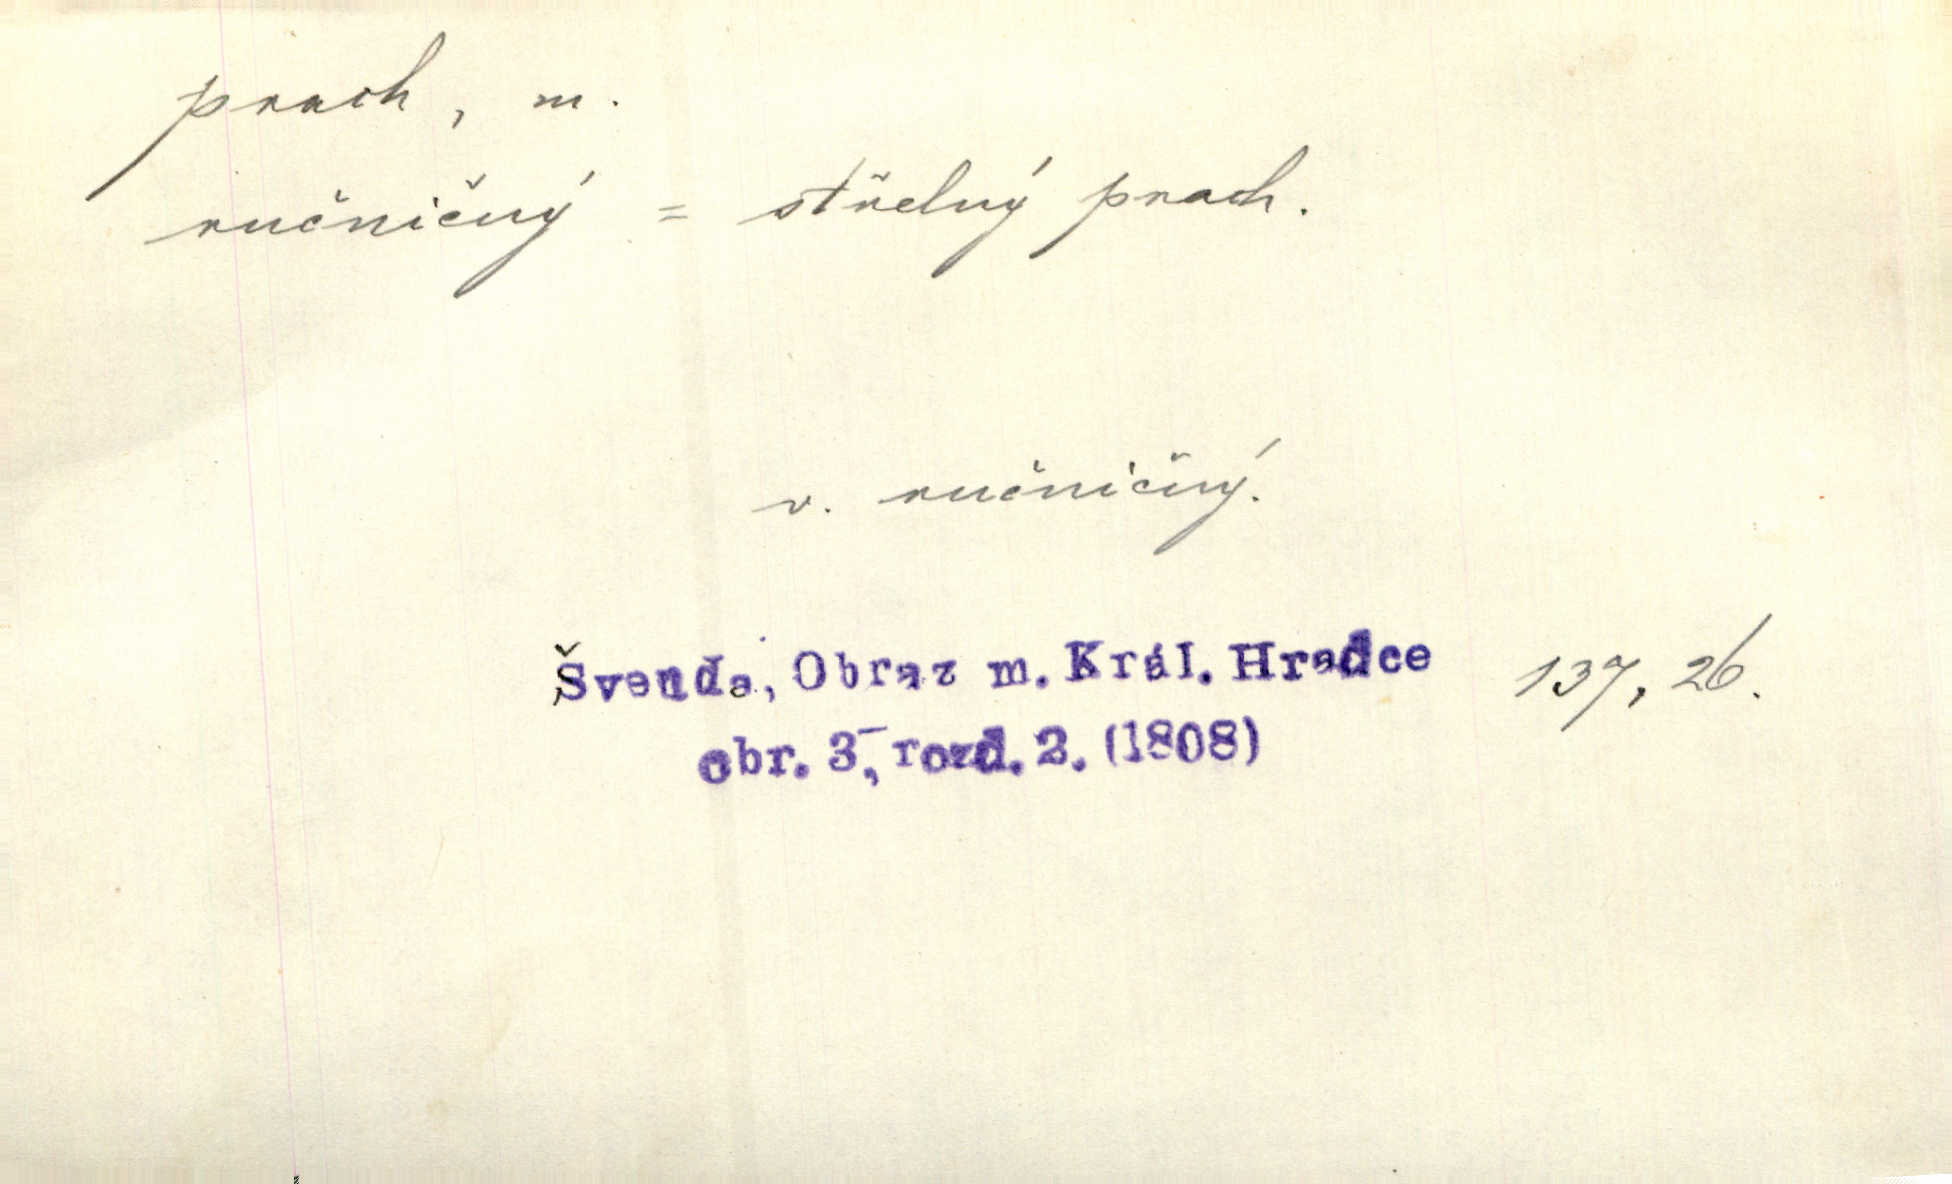 prach, m.
ručničný = střelný prach.
v. ručničný.
Švenda, Obraz m. Král. Hradce 137, 26.
obr. 3, rozd. 2. (1808)